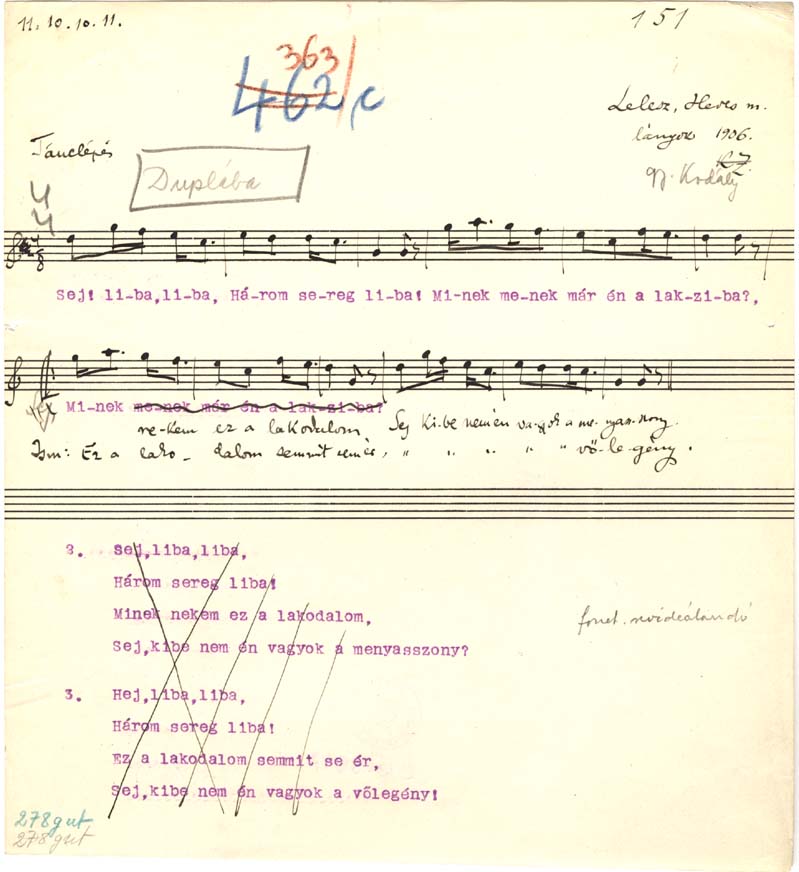 11. 10. 10. 11.
151
363
462/c
Lelesz, Heves m.
lányok 1906.
Kodály
Tánclépés
Duplába
Sej! li-ba,li-ba, Há-rom se-reg li-ba! Mi-nek me-nek már én a lak-zi-ba?,
Mi-nek me-nek már én a lak-zi-ba?
ne-kem ez a lakodalom, Sej ki-be nem én va-gyok a me-nyasszony
Ism: Ez a lako- dalom semmit sem ér, " " " " " vő-le-gény.
2. Sej,liba,liba,
Három sereg liba!
Minek nekem ez a lakodalom,
Sej,kibe nem én vagyok a menyasszony?
fonet. revideálandó
3. Hej,liba,liba,
Három sereg liba!
Ez a lakodalom semmit se ér,
Sej,kibe nem én vagyok a vőlegény!
278gut
278gut